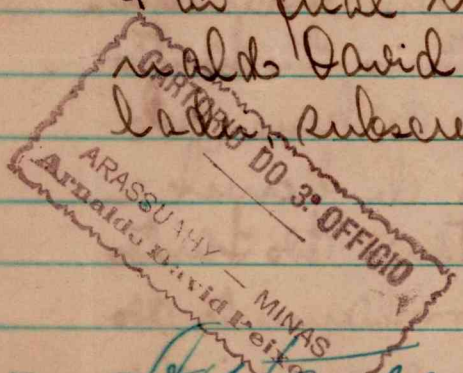 naldo David
subscre
CARTORIO DO 3º OFFICIO
ARASSUAHY — MINAS
Arnaldo David Peixo